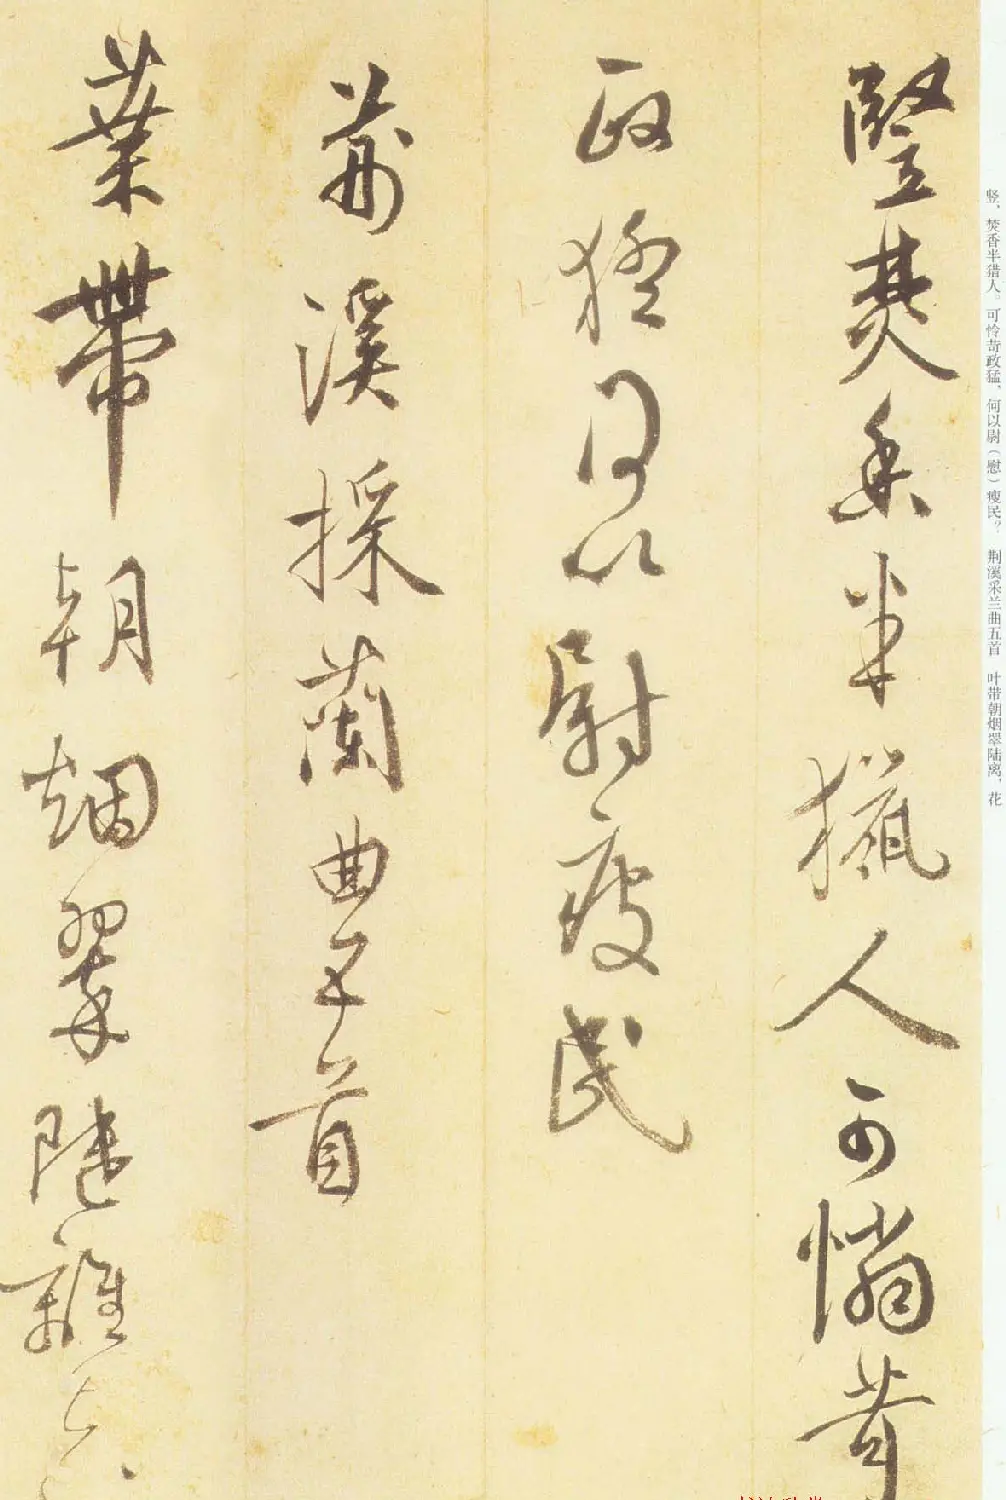 竪焚香半獵人可憐苛
政猛何以尉瘦民
荊溪採蘭曲五首
葉帶朝烟翠陸離花
竖、焚香半猎人。可怜苛政猛，何以尉（慰）瘦民？　荆溪采兰曲五首　叶带朝烟翠陆离，花